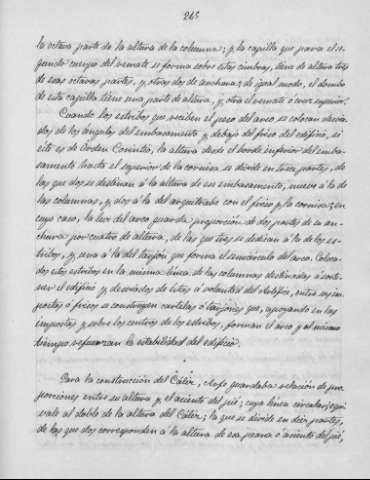 265
la octava parte de la altura de la columna; y la capilla que para el se-
gundo cuerpo del remate se forma sobre estas cimbras, tiene de altura tres
de esas octavas partes, y otras dos de anchura; de igual modo, el dombo
de esta capilla tiene una parte de altura, y otra el remate ó cruz superior.
Cuando los estribos que reciben el peso del arco, se colocan desvia-
dos de los ángulos del embasamento y debajo del friso del edificio, si
éste es de orden Corintio, la altura desde el borde inferior del embasa-
samento hasta el superior de la cornisa se divide en trece partes, de
las que dos se destinan á la altura de ese embasamento, nueve á la de
las columnas, y dos á la del arquitrabe con el friso y la cornisa; en
cuyo caso, la luz del arco guarda proporción de dos partes de su an-
chura por cuatro de altura, de las que tres se dedican á la de los es-
tribos, y una á la del zarjón que forma el semicírculo del arco. Coloca-
dos estos estribos en la misma línea de las columnas destinadas á soste-
ner el edificio y desviados de éstas ó volantes del Artefio, entre sus im-
postas ó frisos se construyen cartelas ó tarjones que, apoyando en las
impostas y sobre los centros de los estribos, forman el arco y al mismo
tiempo refuerzan la estabilidad del edificio.
Para la construcción del Cáliz, Arfe guardaba relación de pro-
porciones entre su altura y el asiento del pié; cuya línea circular, equi-
vale al doble de la altura del Cáliz; la que se divide en diez partes,
de las que dos corresponden á la altura de esa peana ó asiento del pié,